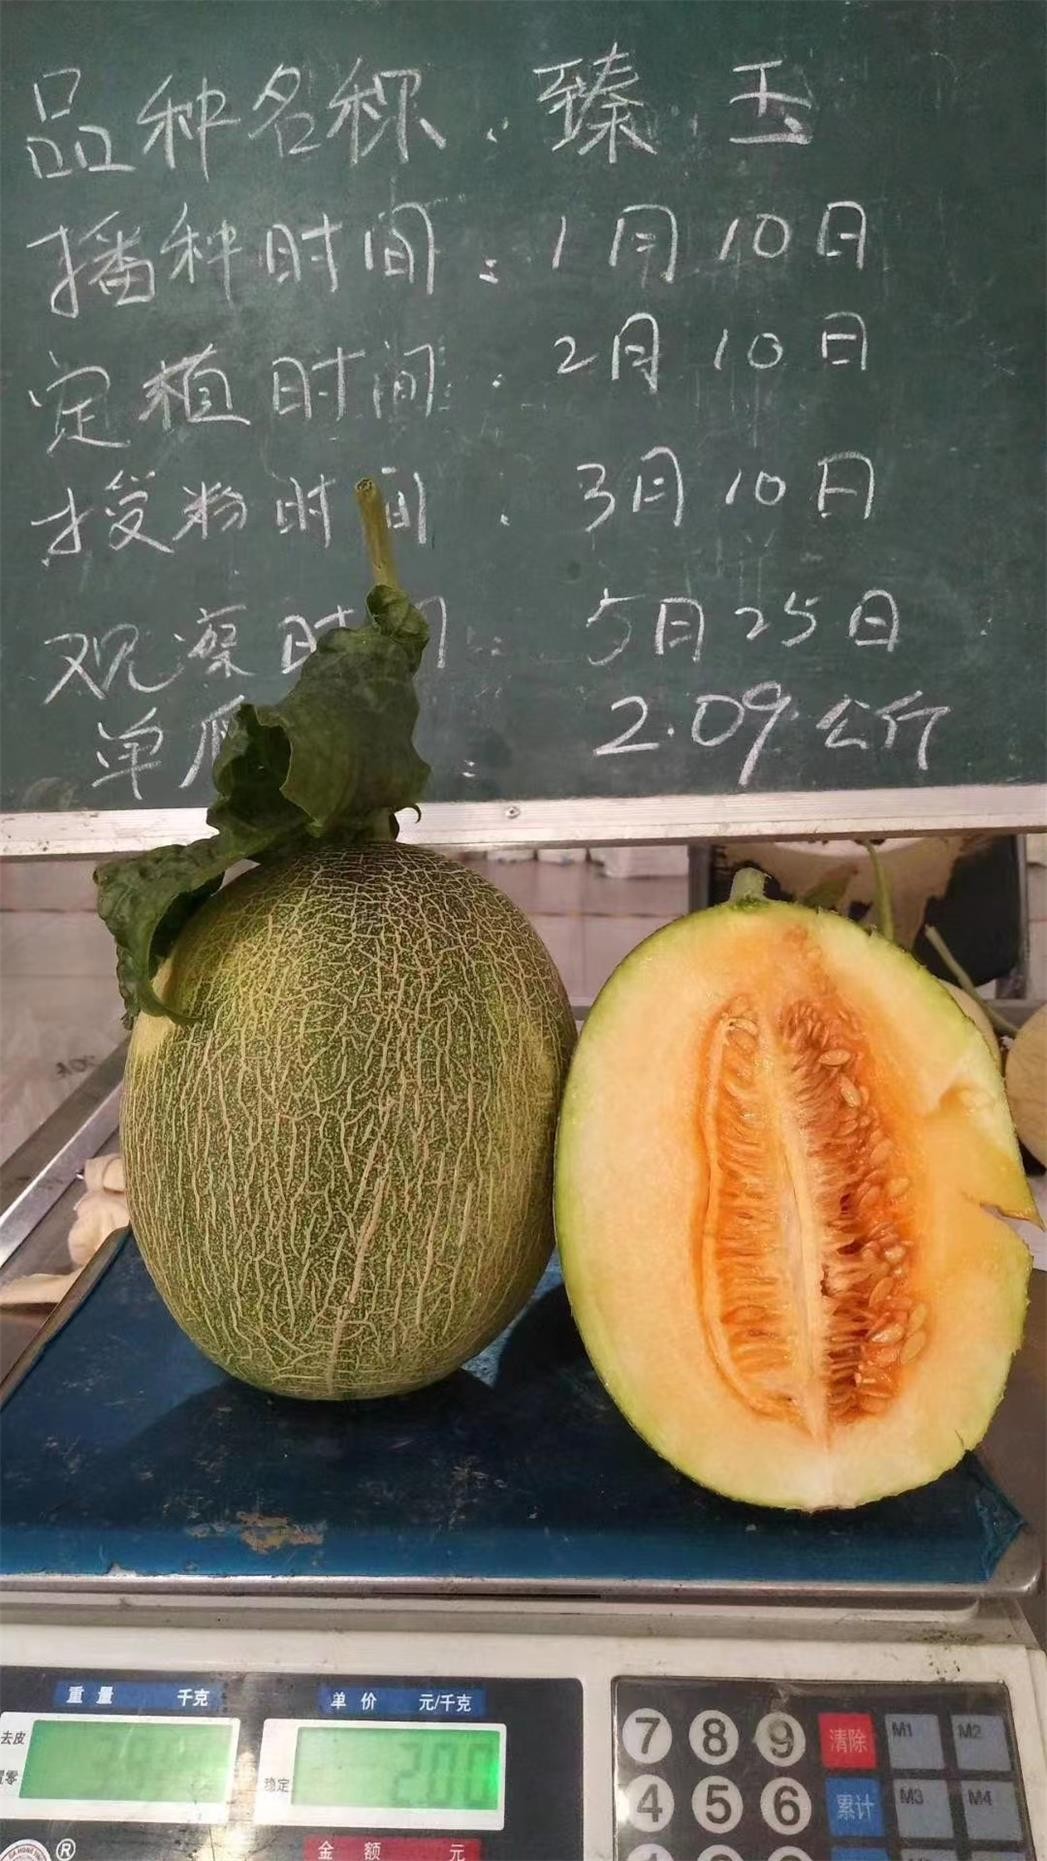 品种名称:臻玉
播种时间:1月10日
定植时间:2月10日
授粉时间:3月10日
观察时间:5月25日
单 : 2.09公斤
重量 千克
单价 元/千克
去皮
置零
稳定
2.00
金额 元
7 8 9 清除 M1 M2
4 5 6 累计 M3 M4
®